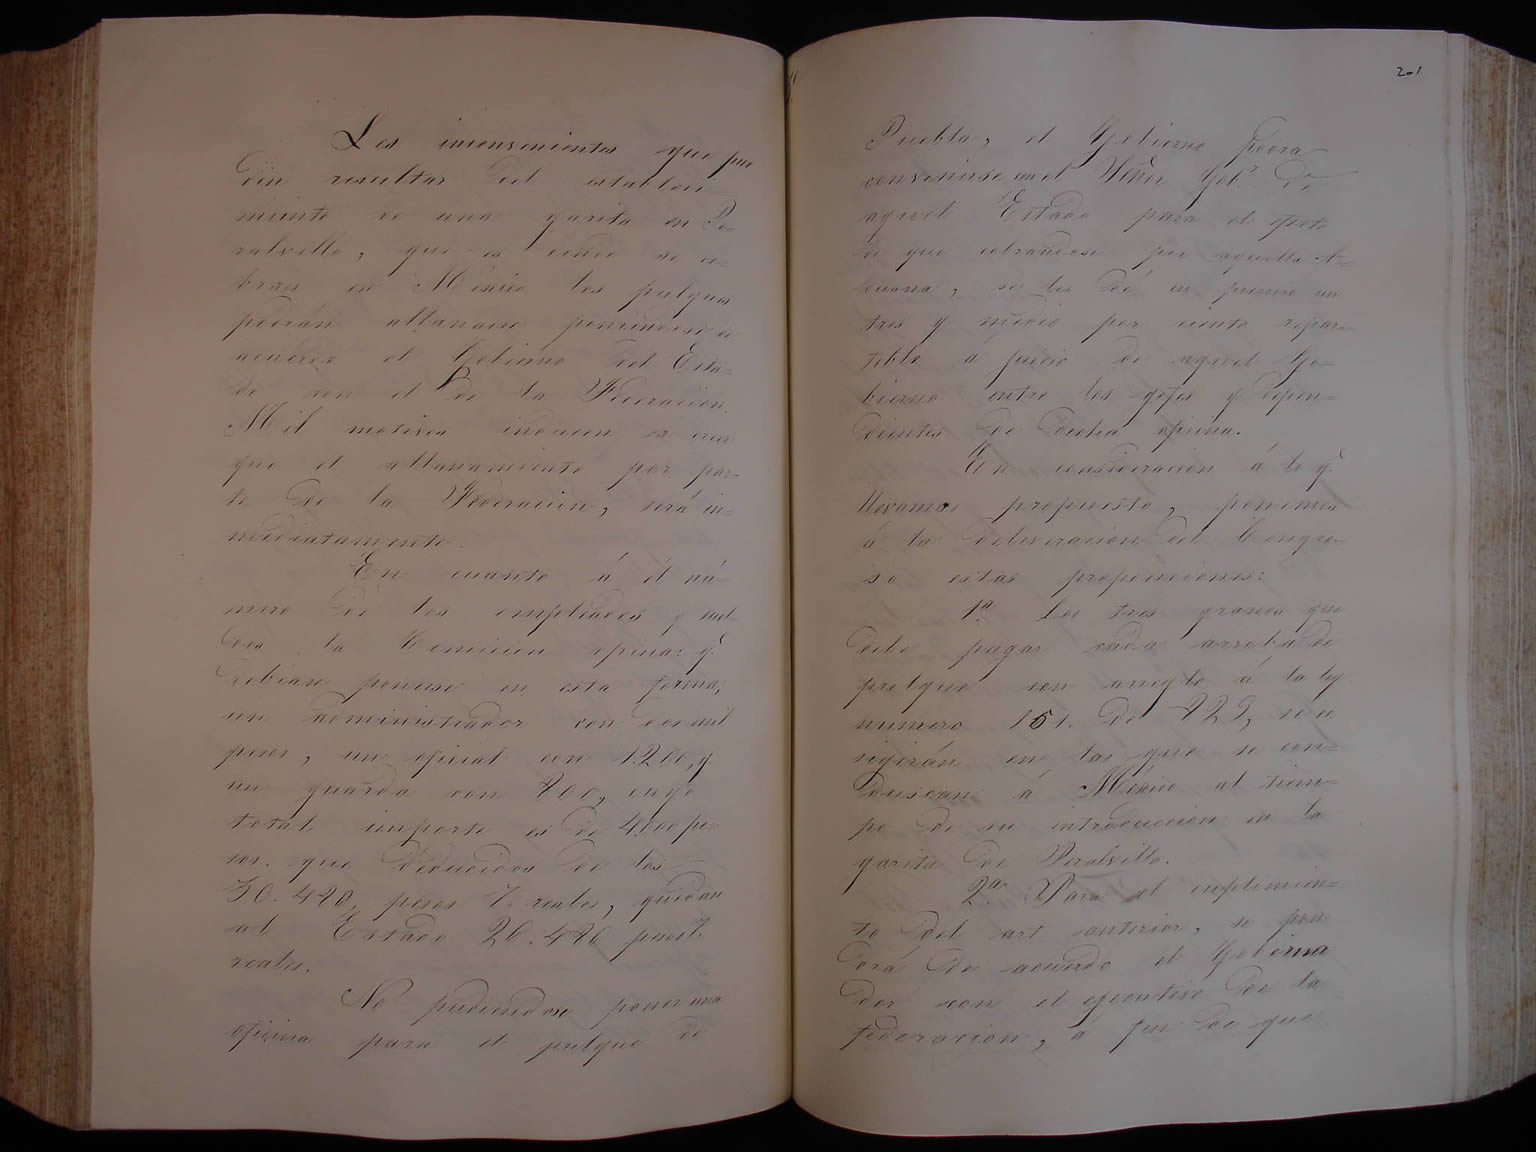 Los inconvenientes que pue
dan resultar del estableci
miento de una garita en Pe=
ralvillo, que es donde se co=
bran en México los pulques
podrán allanarse poniendose de
acuerdo el Gobierno del Esta=
do con el de la Federacion.
Mil motivos inducen a creer
que el allanamiento por par=
te de la Federacion, será in=
mediatamente.
En cuanto á el nú=
mero de los empleados y suel=
dos la Comision opina q.
debian ponerse en esta forma;
un administrador con dos mil
pesos, un oficial con 1200, y
un guarda con 800, cuyo
total importe es de 4.000 pe=
sos. que deducidos de los
30.490, pesos 7. reales, quedan
al Estado 26.490 pesos 7.
reales.
No pudiendose poner una
oficina para el pulque de
201
Puebla, el Gobierno podra
convenirse con el Señor Gob.r de
aquel Estado para el efecto
de que cobrandose por aquella A=
duana, se les dé en premio un
tres y medio por ciento repar=
tible á juicio de aquel Go=
bierno entre los gefes y depen=
dientes de dicha oficina.
En consideracion á lo q.
llevamos propuesto, ponemos
á la deliveracion del Congre=
so estas proposiciones:
1.a Los tres granos que
debe pagar cada arroba de
pulque con arreglo á la ley
numero 151. de 829, se e
sigirán en los que se con=
duscan á México al tiem=
po de su introduccion en la
garita de Peralvillo.
2.a Para el cumplimien=
to del art. anterior, se pon
drá de acuerdo el Goberna
dor con el ejecutivo de la
federacion, á fin de que